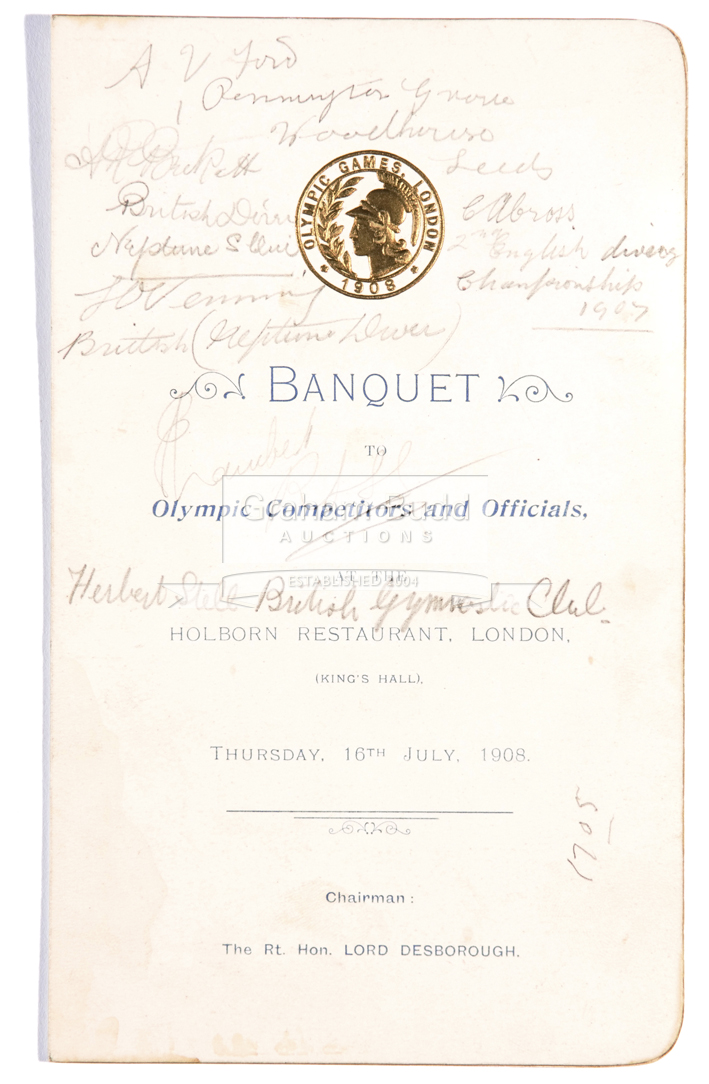 A V Ford
1 Pennington Grove
Woodhouse
Leeds
British Diver
Neptune S Club
C A Cross
2nd English diving
Championship
1907
British (Neptune Diver)
OLYMPIC GAMES, LONDON
1908
BANQUET
TO
Olympic Competitors and Officials,
Graham Budd
AUCTIONS
AT THE
ESTABLISHED 2004
Herbert Stell British Gymnastic Club.
HOLBORN RESTAURANT, LONDON,
(KING'S HALL),
THURSDAY, 16TH JULY, 1908.
1705
Chairman:
The Rt. Hon. LORD DESBOROUGH.